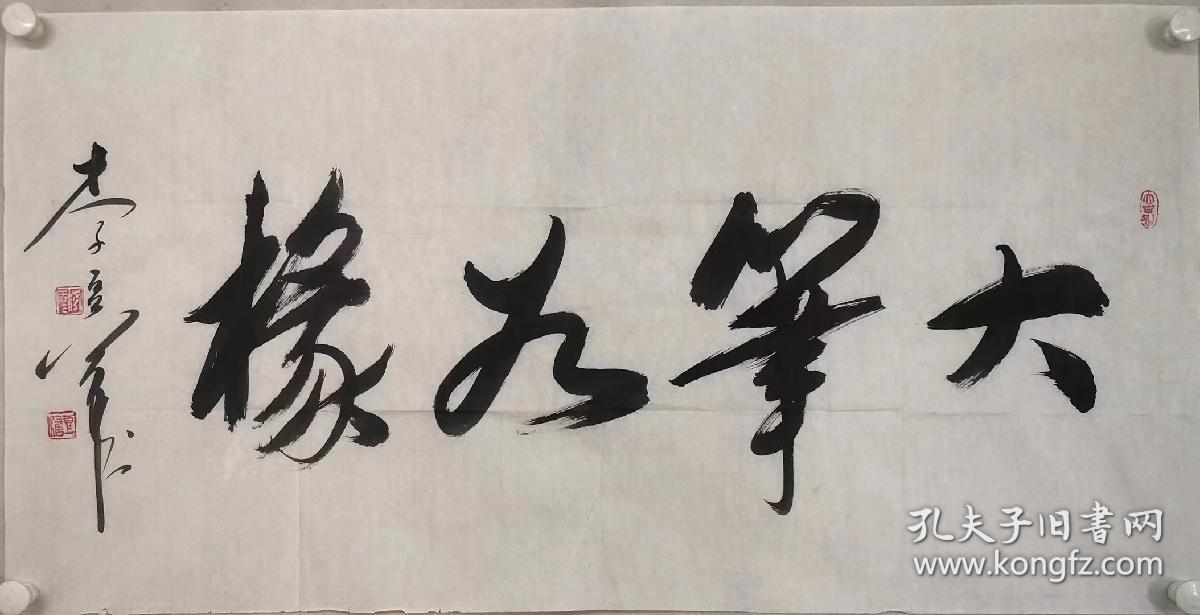 大筆如椽
李
孔夫子旧书网
www.kongfz.com